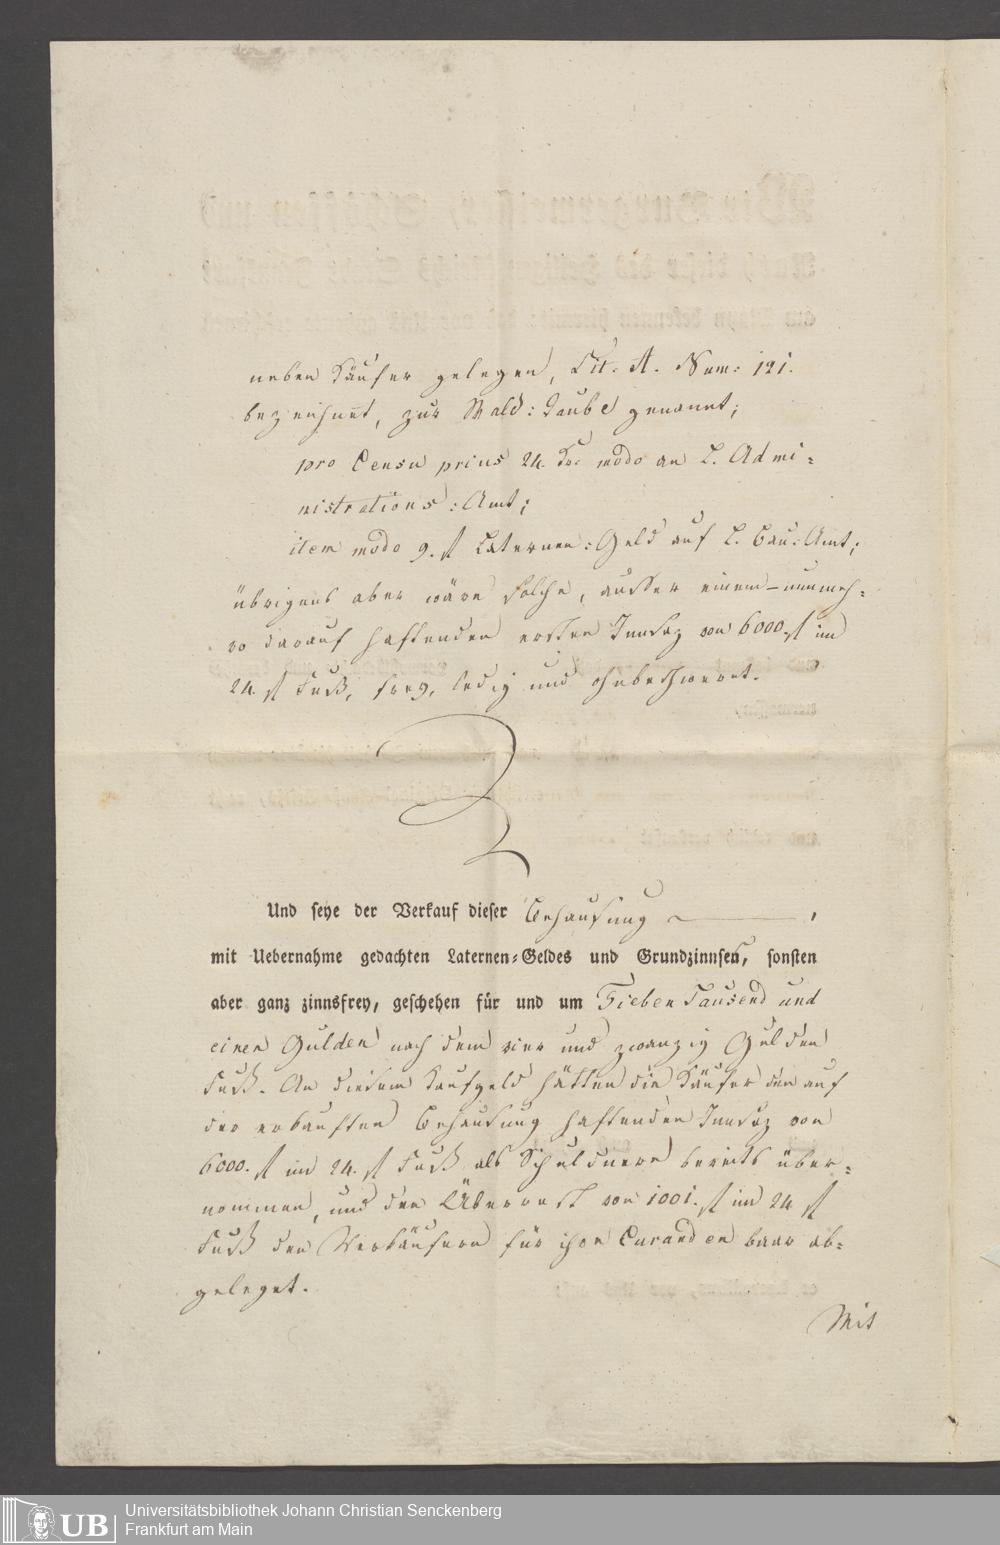 neben Käufer gelegen, Lit. A. Num: 121.
bezeichnet, zur Wald: Taube genannt;
pro Censu prius 24. modo an L. Admi=
nistrations: Amt;
item modo 9. fl Laternen: Geld auf L. Bau: Amt;
übrigens aber wäre solche, ausser einem nunmeh=
ro darauf haftenden ersten Innsaz von 6000. fl im
24. fl Fuß, frey, ledig und ohnbeschwert.
Und seye der Verkauf dieser Behausung
mit Uebernahme gedachten Laternen=Geldes und Grundzinnsen, sonsten
aber ganz zinnsfrey, geschehen für und um Sieben Tausend und
einen Gulden nach dem vier und zwanzig Gulden
Fuß. An diesem Kaufgeld hätten die Käufer den auf
der erkauften Behausung haftenden Innsaz von
6000. fl im 24. fl Fuß als Schuldnere bereits über=
nommen, und den Überrest von 1001. fl im 24 fl
Fuß den Verkäufern für ihre Curanden baar ab=
geleget.
Mit
UB
Universitätsbibliothek Johann Christian Senckenberg
Frankfurt am Main